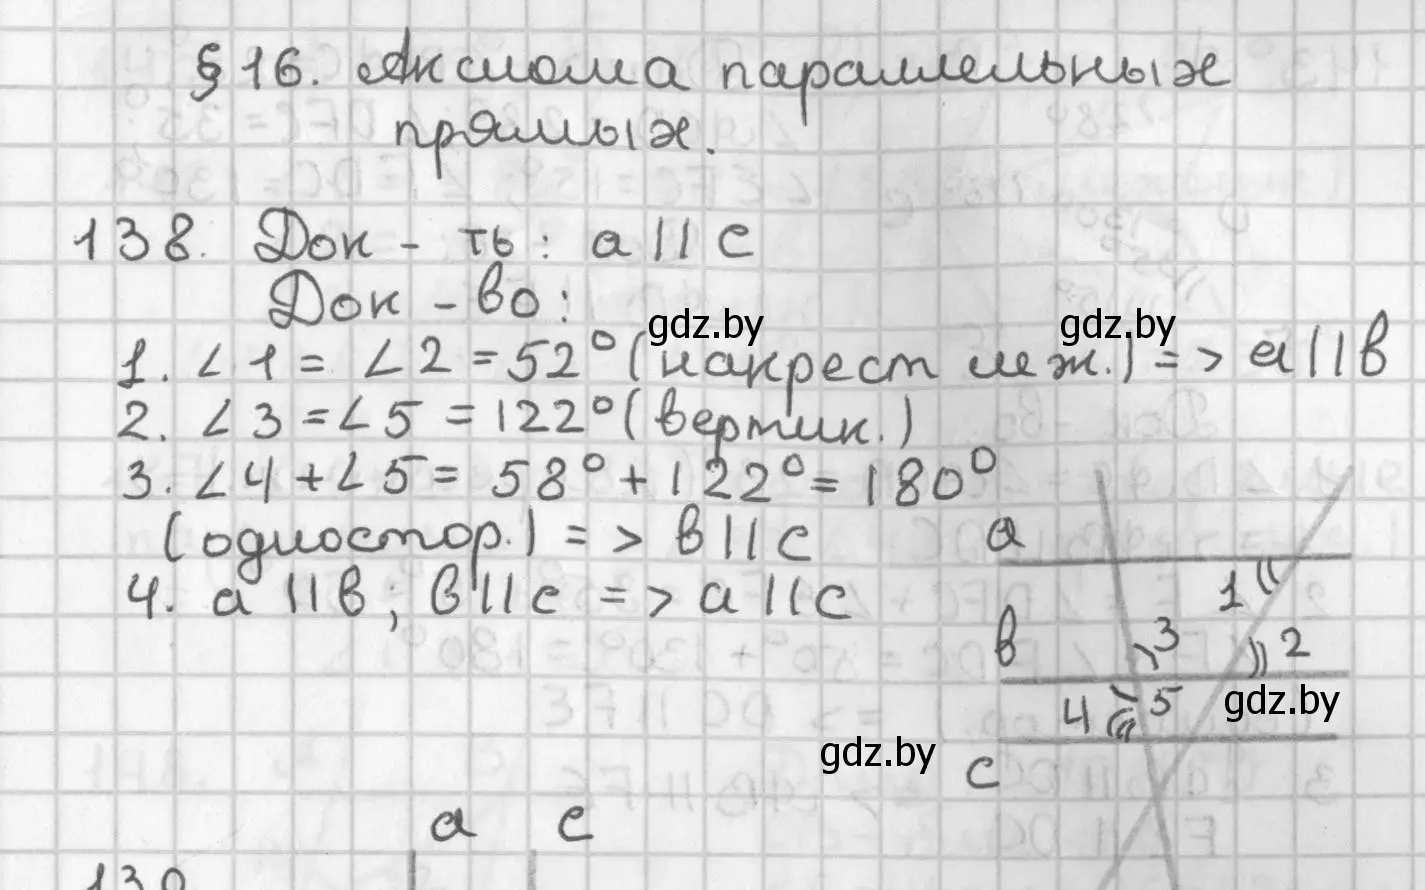 § 16. Аксиома параллельных
прямых.
138. Док - ть: a || c
Док - во:
gdz.by gdz.by
1. ∠1 = ∠2 = 52° (накрест леж.) => a || в
2. ∠3 = ∠5 = 122° (вертик.)
3. ∠4 + ∠5 = 58° + 122° = 180°
(одностор.) => в || c
4. a || в; в || c => a || c
a
1
в 3 2
4 5 gdz.by
gdz.by
c
a c
139